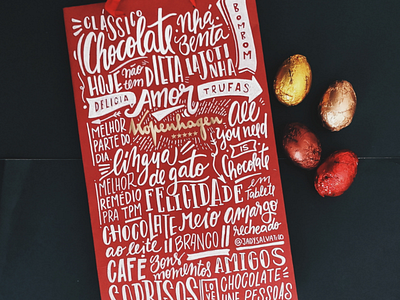 CLÁSSICO
Chocolate
Nhá
Benta
BOMBOM
HOJE não tem DIETA
LAJOTINHA
DELÍCIA
Amor
TRUFAS
MELHOR
PARTE DO
DIA
Kopenhagen
All
you need
IS
Chocolate
língua
de gato
MELHOR
REMÉDIO
PRA TPM
FELICIDADE
em
Tablete
CHOCOLATE
ao leite
meio amargo
BRANCO
recheado
@JADYSALVATICO
CAFÉ
bons
momentos
AMIGOS
SORRISOS
LO
VE
CHOCOLATE
UNE PESSOAS